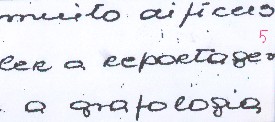 muito difíceis
5
ler a reportagem
a grafologia